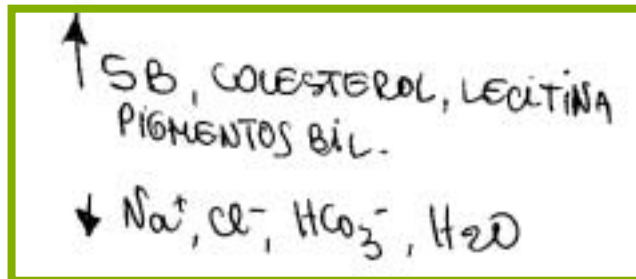 ↑ SB, COLESTEROL, LECITINA
PIGMENTOS BIL.
↓ Na⁺, Cl⁻, HCO₃⁻, H2O